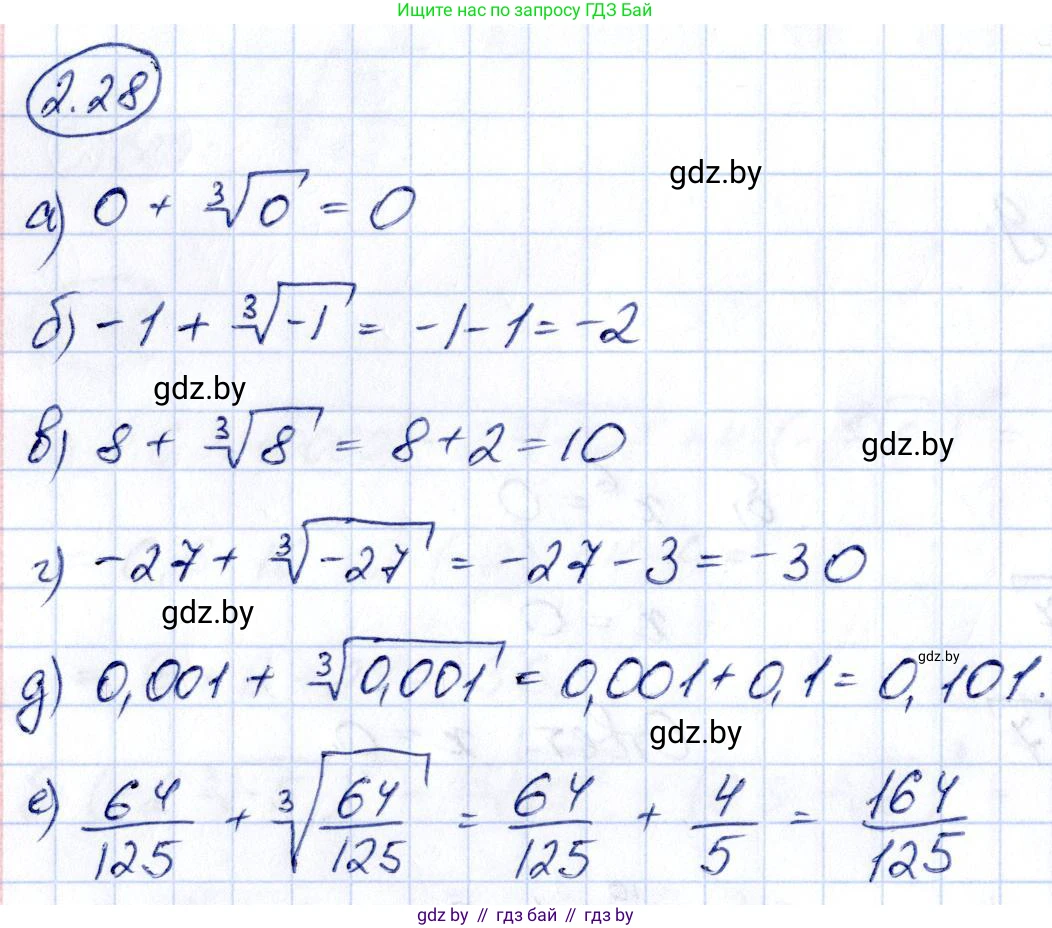 Ищите нас по запросу ГДЗ Бай
2.28
gdz.by
а) 0 + ∛0 = 0
б) -1 + ∛-1 = -1 - 1 = -2
gdz.by
в) 8 + ∛8 = 8 + 2 = 10
gdz.by
г) -27 + ∛-27 = -27 - 3 = -30
gdz.by
gdz.by
д) 0,001 + ∛0,001 = 0,001 + 0,1 = 0,101.
gdz.by
е) 64/125 + ∛64/125 = 64/125 + 4/5 = 164/125
gdz by // гдз бай // gdz by